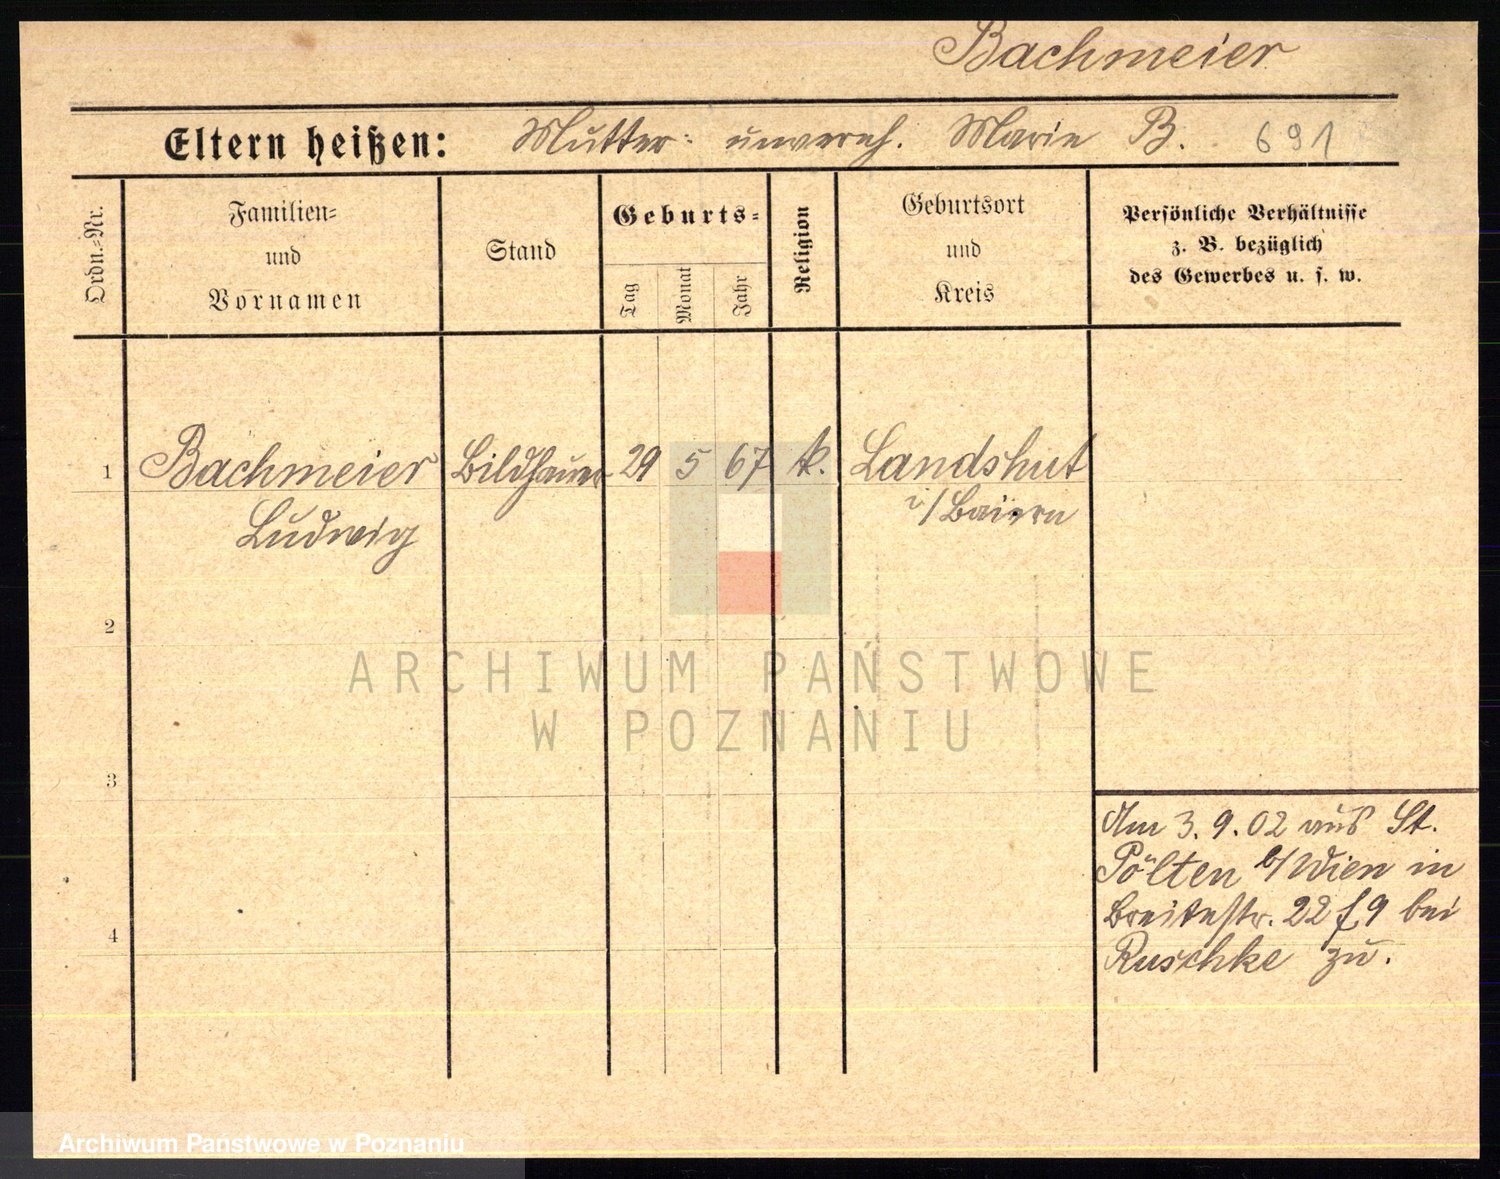 Bachmeier
Eltern heißen: Mutter: unvereh. Marie B. 691
Ordn.=Nr.
Familien=
und
Vornamen
Stand
Geburts=
Tag
Monat
Jahr
Religion
Geburtsort
und
Kreis
Persönliche Verhältnisse
z. B. bezüglich
des Gewerbes u. s. w.
1 Bachmeier Bildhauer 29 5 67 k. Landshut
Ludwig i/Baiern
2
ARCHIWUM PAŃSTWOWE
W POZNANIU
3
Am 3.9.02 aus St.
Pölten b/Wien in
Breitestr. 22 f. 9 bei
4
Ruschke zu.
Archiwum Państwowe w Poznaniu